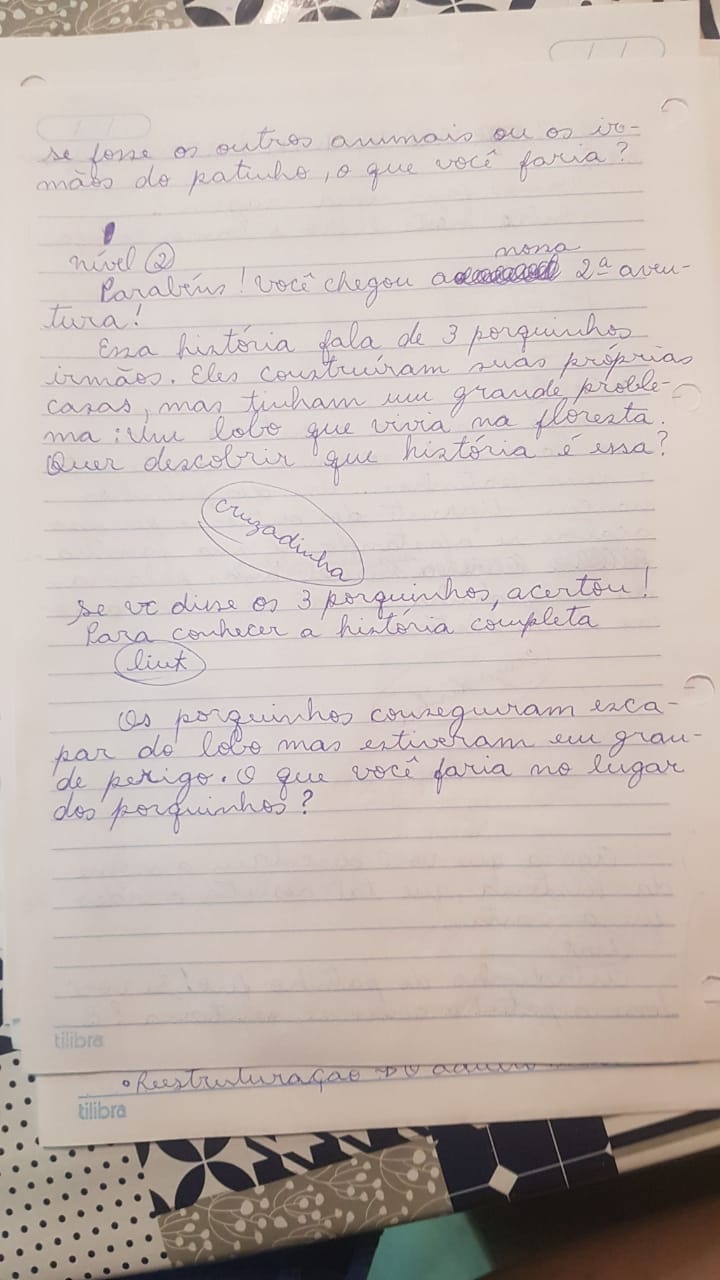 se fosse os outros animais ou os ir-
mãos do patinho, o que você faria?
nível 2
nossa
Parabéns! Você chegou a 2ª aven-
tura!
Essa história fala de 3 porquinhos
irmãos. Eles construíram suas próprias
casas, mas tinham um grande proble-
ma: Um lobo que vivia na floresta.
Quer descobrir que história é essa?
cruzadinha
Se vc disse os 3 porquinhos, acertou!
Para conhecer a história completa
link
Os porquinhos conseguiram esca-
par do lobo mas estiveram em gran-
de perigo. O que você faria no lugar
dos porquinhos?
tilibra
• Reestruturação
tilibra